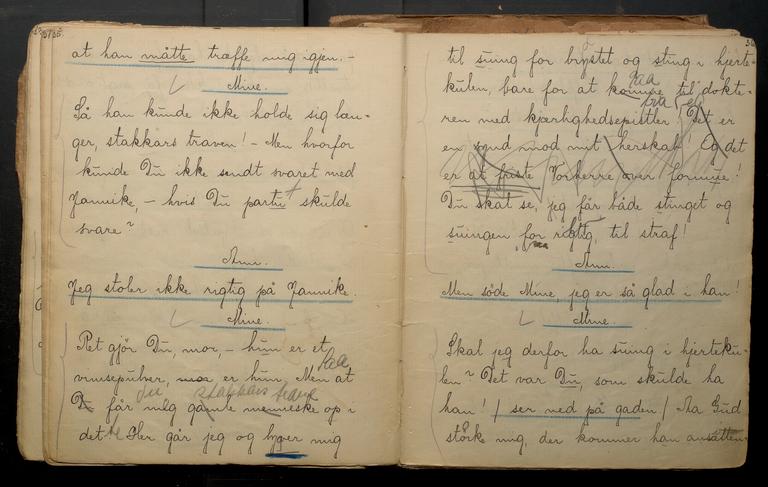 at han måtte træffe mig igjen. –
Mine.
Så han kunde ikke holde sig læn-
ger, stakkars traven! – Men hvorfor
kunde Du ikke sendt svaret med
Jannike, – hvis Du partu skulde
svare?
Ann.
Jeg stoler ikke rigtig på Jannike.
Mine.
Ret gjør Du, mor, – hun er et
vimsepulver, mor er hun. Men at faa
du stakkars
Du får mig gamle menneske op i
det! Her går jeg og lyver mig
til suing for brystet og sting i hjerte-
kulen, bare for at komme til dokte-
faa
ren med kjærlighedsepistler! Det er
en synd mod mit herskab! Og det
er at friste Vorherre over formue!
Du skal se, jeg får både stinget og
suingen for rigtig, til straf!
Ann.
Men søde Mine, jeg er så glad i han!
Mine.
Skal jeg derfor ha suing i hjerteku-
len? Det var Du, som skulde ha
han! / ser ned på gaden / Aa Gud
styrke mig, der kommer han